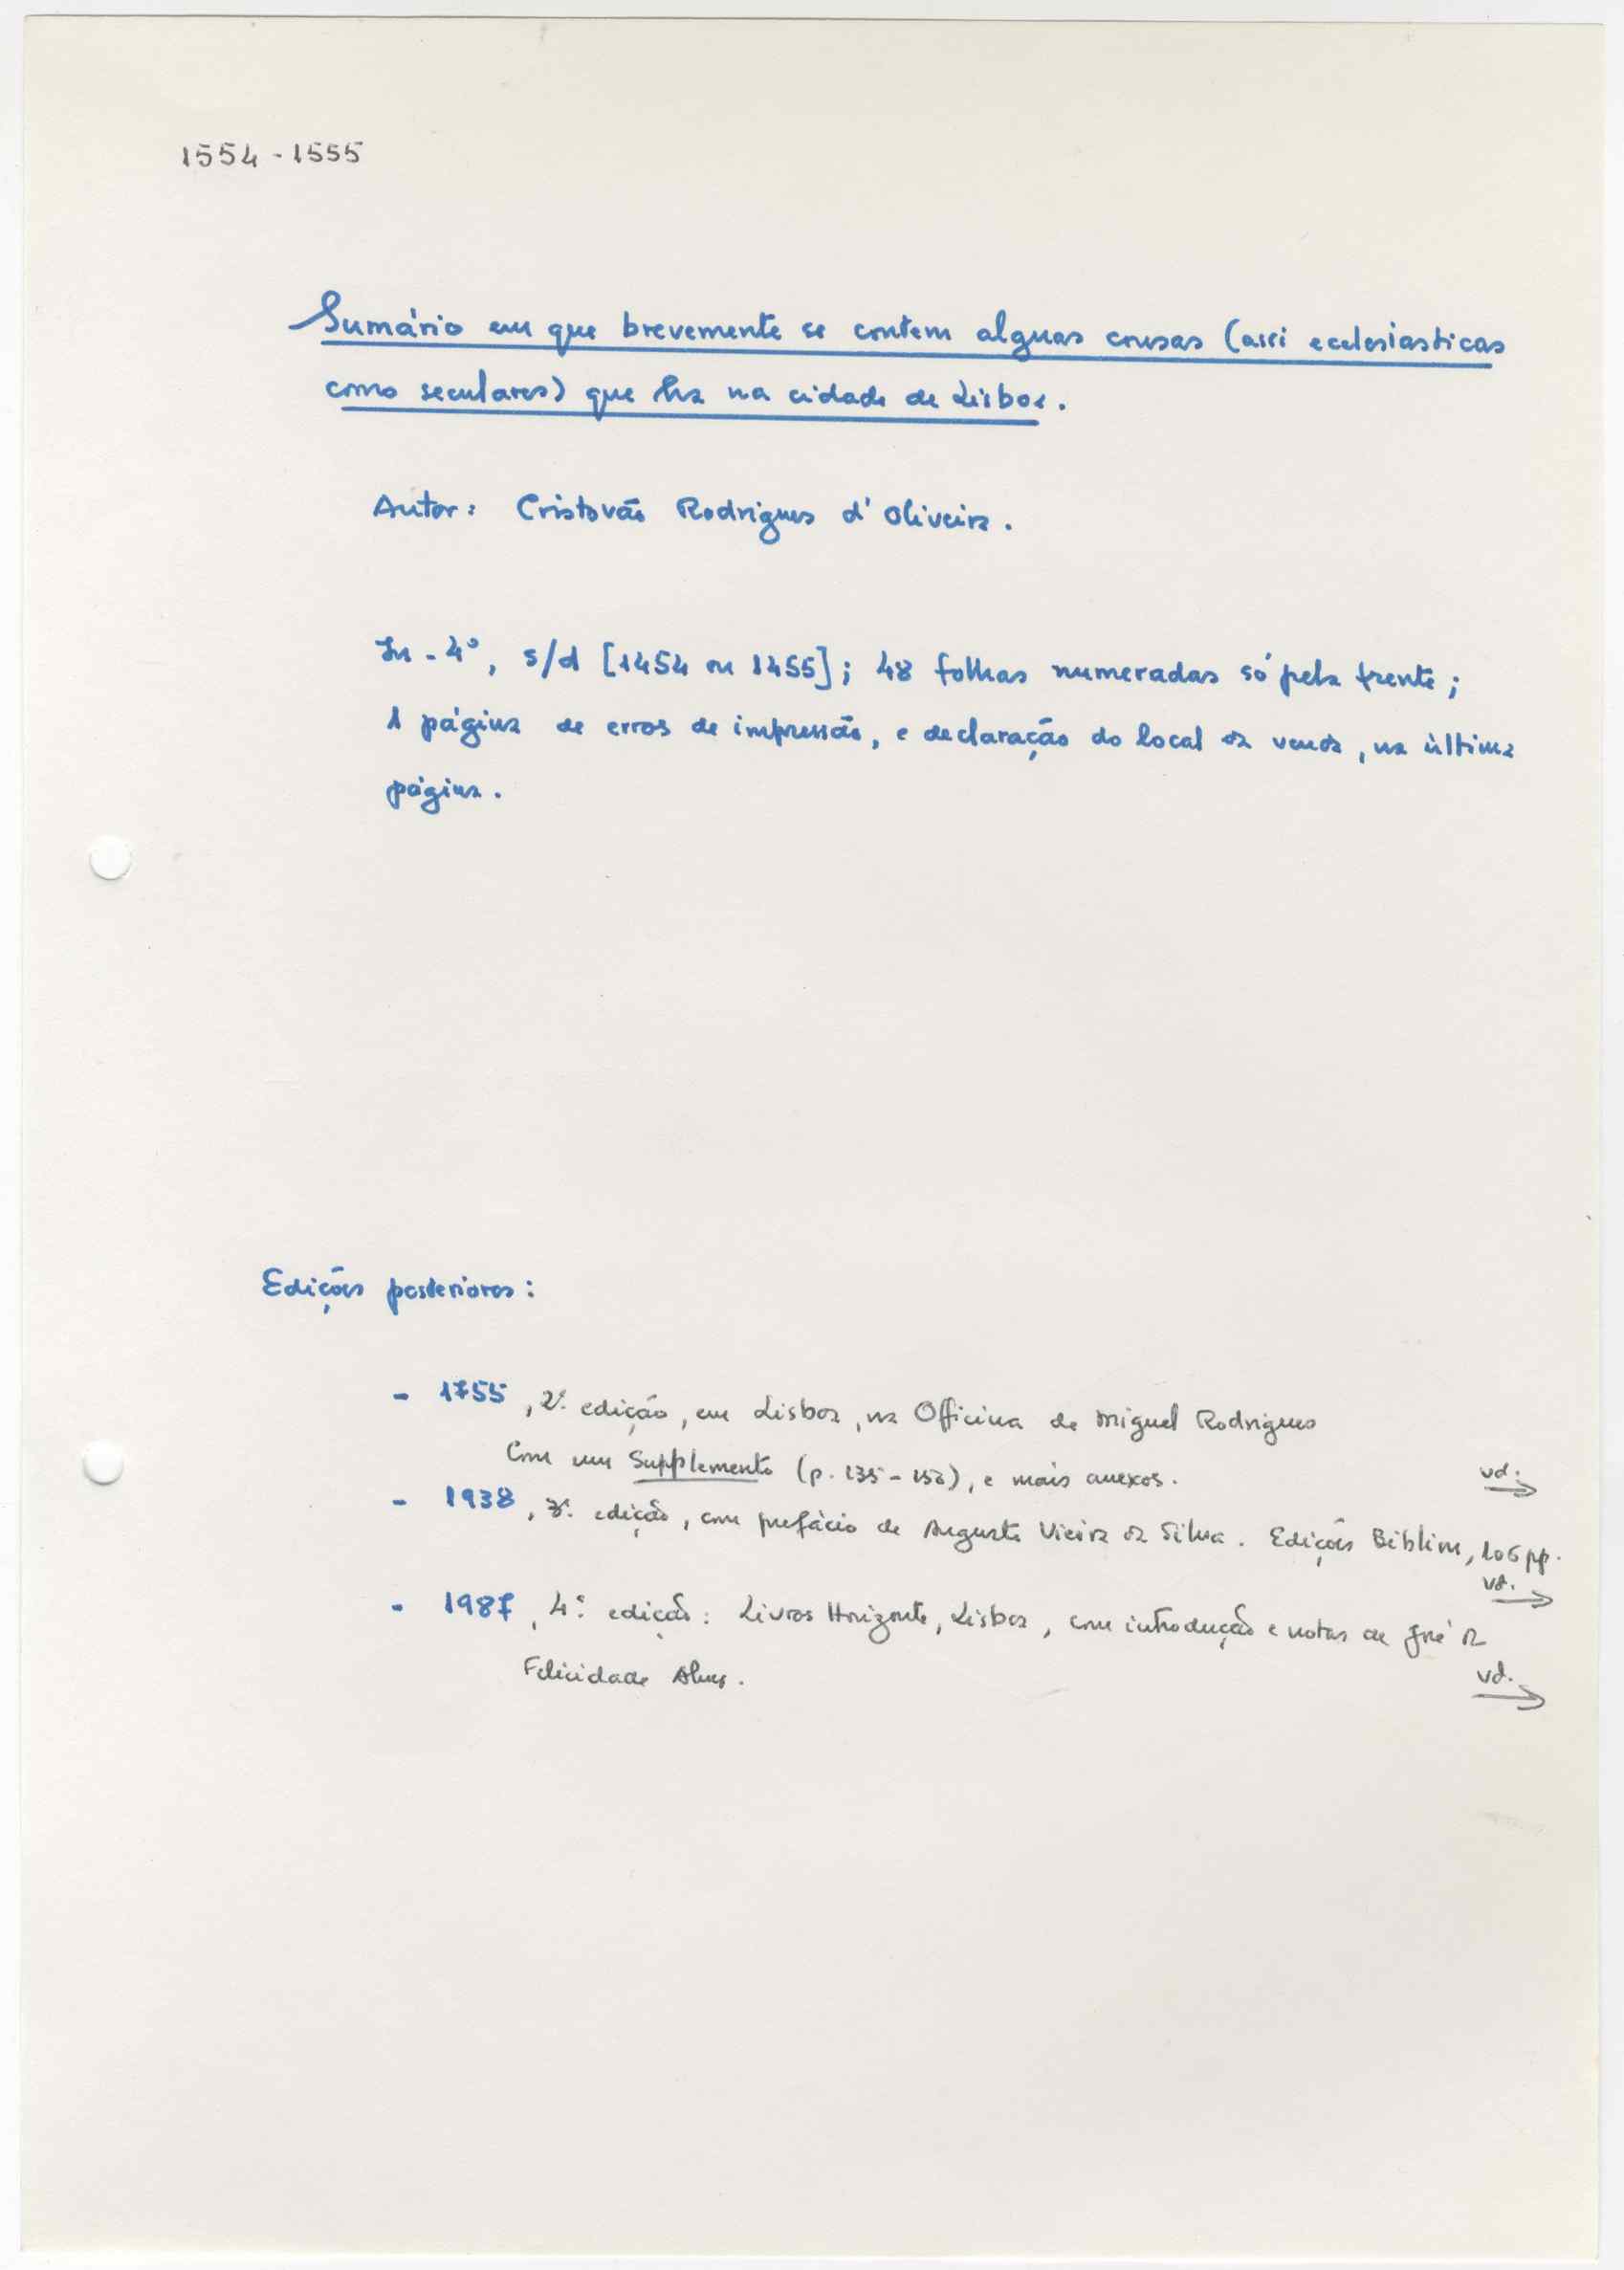 1554 - 1555
Sumário em que brevemente se contem alguas cousas (assi ecclesiasticas
como seculares) que ha na cidade de Lisboa.
Autor: Cristovão Rodrigues d'Oliveira.
In-4º, s/d [1454 ou 1455]; 48 folhas numeradas só pela frente;
1 página de erros de impressão, e declaração do local da venda, na última
página.
Edições posteriores:
- 1755, 2ª. edição, em Lisboa, na Officina de Miguel Rodrigues
Com um Supplemento (p. 135-), e mais anexos.
vd. →
- 1938, 3ª. edição, com prefácio de Augusto Vieira da Silva. Edições Biblion, 106 pp.
vd. →
- 1987, 4ª. edição: Livros Horizonte, Lisboa, com introdução e notas de José da
Felicidade Alves.
vd. →